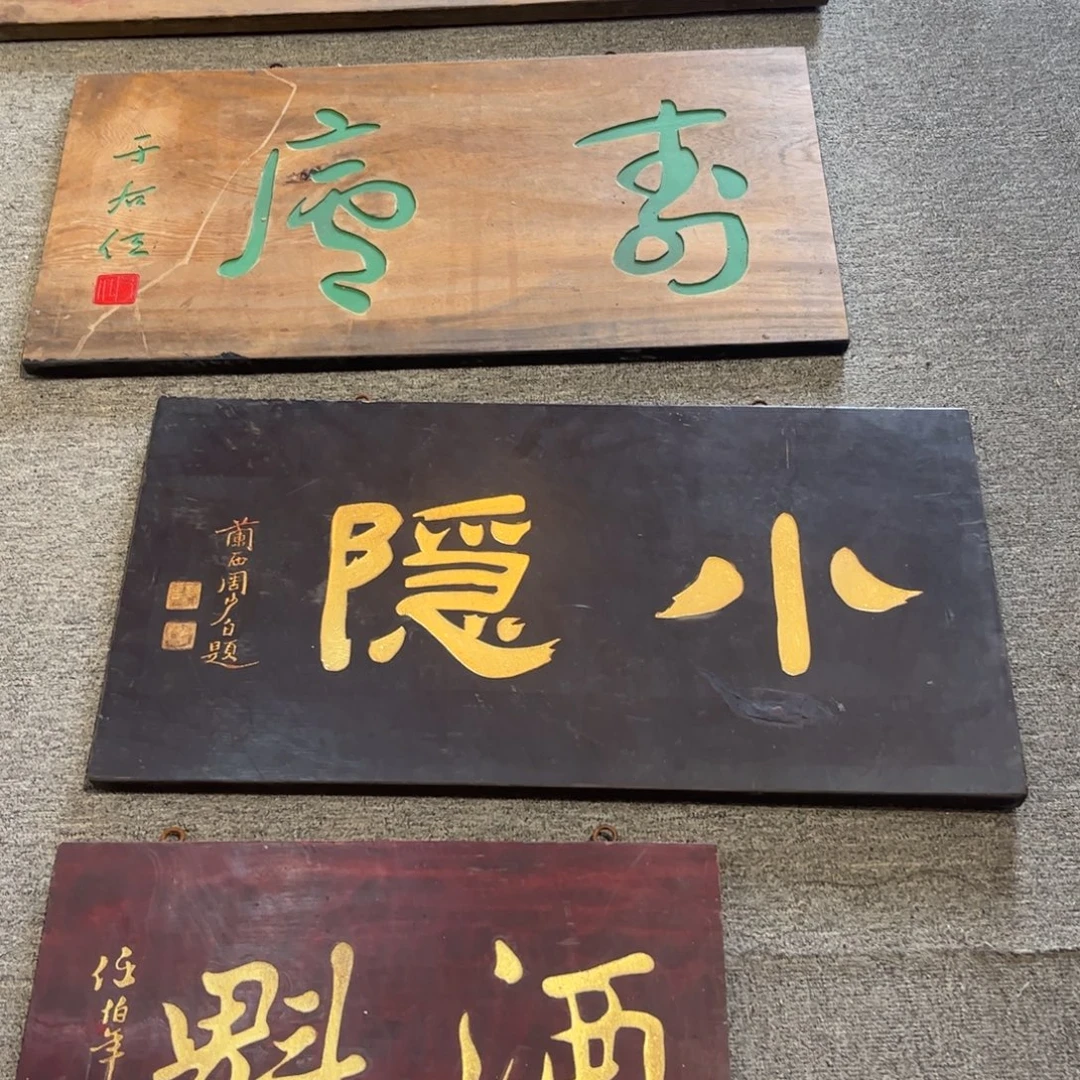 寿廬
于右任
小隱
蘭西周少白題
酒魁
任伯年